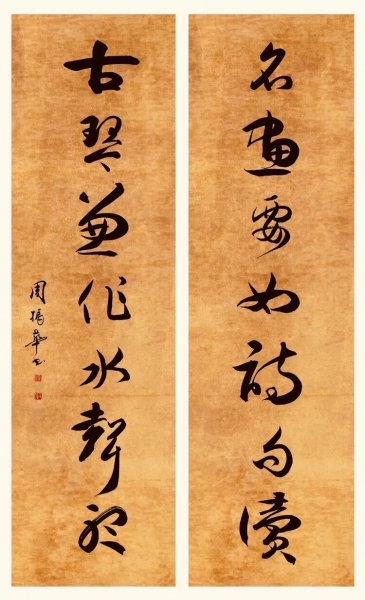 名畫要如詩句讀
古琴兼作水聲聽
周華書